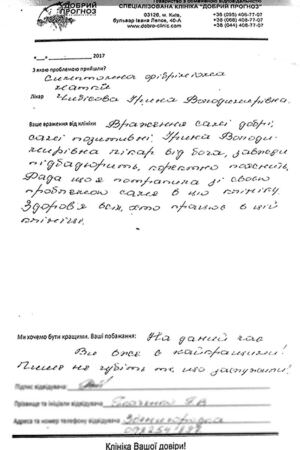 ДОБРИЙ ПРОГНОЗ
СПЕЦІАЛІЗОВАНА КЛІНІКА "ДОБРИЙ ПРОГНОЗ"
03126, м. Київ,
бульвар Івана Лепсе, 40-А
www.dobro-clinic.com
+38 (095) 408-77-07
+38 (068) 408-77-07
+38 (044) 408-77-07
2017
З якою проблемою прийшли?
Симптомна фіброміома
матки
Лікар Чибісова Ірина Володимирівна.
Ваше враження від клініки Враження самі добрі,
самі позитивні, Ірина Володи-
мирівна лікар від бога, завжди
підбадьорить, коректно пояснить.
Рада що я потрапила зі своєю
проблемою саме в цю клініку.
Здоров'я всім, хто працює в цій
клініці.
Ми хочемо бути кращими. Ваші побажання: На даний час
Ви вже є найкращими!
Лише не губіть те, що заслужили!
Підпис відвідувача
Прізвище та ініціали відвідувача
Адреса та номер телефону відвідувача
Клініка Вашої довіри!